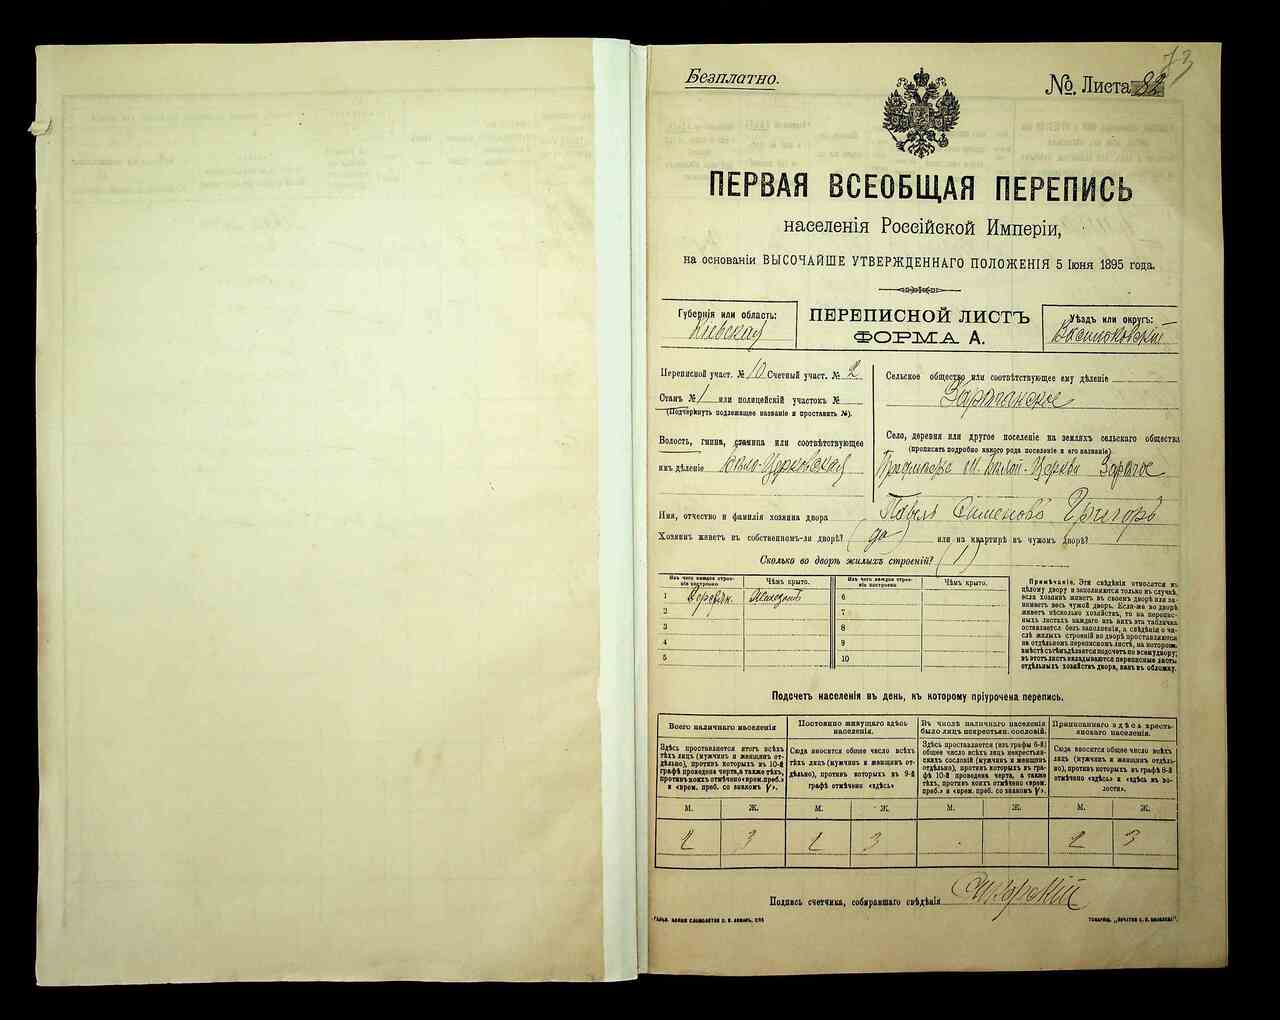 73
Безплатно.
№ Листа 82
ПЕРВАЯ ВСЕОБЩАЯ ПЕРЕПИСЬ
населенія Россійской Имперіи,
на основаніи ВЫСОЧАЙШЕ УТВЕРЖДЕННАГО ПОЛОЖЕНІЯ 5 Іюня 1895 года.
Губернія или область:
Кіевская
ПЕРЕПИСНОЙ ЛИСТЪ
ФОРМА А.
Уѣздъ или округъ:
Васильковскій
Переписной участ. № 10 Счетный участ. № 2
Станъ № 1 или полицейскій участокъ №
(Подчеркнуть подлежащее названіе и проставить №).
Волость, гмина, станица или соотвѣтствующее
имъ дѣленіе Бѣло-Церковская
Сельское общество или соотвѣтствующее ему дѣленіе
Зарѣчанское
Село, деревня или другое поселеніе на земляхъ сельскаго общества
(прописать подробно какого рода поселеніе и его названіе)
м. Бѣлой-Церкви Зарѣчье
Имя, отчество и фамилія хозяина двора Павелъ Семеновъ Григоръ
Хозяинъ живетъ въ собственномъ-ли дворѣ? (да) или на квартирѣ въ чужомъ дворѣ?
Сколько во дворѣ жилыхъ строеній? (1)
Изъ чего каждое строеніе построено
Чѣмъ крыто.
Изъ чего каждое строеніе построено
Чѣмъ крыто.
1 Деревян.
2
3
4
5
6
7
8
9
10
Примѣчаніе. Эти свѣдѣнія относятся къ
цѣлому двору и заполняются только въ случаѣ,
если хозяинъ живетъ въ своемъ дворѣ или занимаетъ
весь чужой дворъ. Если-же во дворѣ
живетъ нѣсколько хозяйствъ, то на переписныхъ
листахъ каждаго изъ нихъ эта табличка
оставляется безъ заполненія, а свѣдѣнія о числѣ
жилыхъ строеній во дворѣ проставляются
на отдѣльномъ переписномъ листѣ, на которомъ
вмѣстѣ съ тѣмъ дѣлается подсчетъ по всему двору;
въ этотъ листъ вкладываются переписные листы
отдѣльныхъ хозяйствъ двора, какъ въ обложку.
Подсчетъ населенія въ день, къ которому пріурочена перепись.
Всего наличнаго населенія
Здѣсь проставляется итогъ всѣхъ
тѣхъ лицъ (мужчинъ и женщинъ отдѣльно),
противъ которыхъ въ 10-й
графѣ проведена черта, а также тѣхъ,
противъ коихъ отмѣчено «врем. преб.»
и «врем. преб. со знакомъ V».
Постоянно живущаго здѣсь
населенія.
Сюда вносится общее число всѣхъ
тѣхъ лицъ (мужчинъ и женщинъ отдѣльно),
противъ которыхъ въ 9-й
графѣ отмѣчено «здѣсь»
Въ числѣ наличнаго населенія
было лицъ некрестьян. сословій.
Здѣсь проставляется (изъ графы 6-й)
общее число всѣхъ лицъ некрестьянскихъ
сословій (мужчинъ и женщинъ
отдѣльно), противъ которыхъ въ графѣ
10-й проведена черта, а также
тѣхъ, противъ коихъ отмѣчено «врем.
преб.» и «врем. преб. со знакомъ V».
Приписаннаго здѣсь крестьянскаго
населенія.
Сюда вносится общее число всѣхъ
лицъ (мужчинъ и женщинъ отдѣльно),
противъ которыхъ въ графѣ 8-й
отмѣчено «здѣсь» и «здѣсь въ волости».
М. Ж. М. Ж. М. Ж. М. Ж.
2 3 2 3 2 3
Подпись счетчика, собиравшаго свѣдѣнія